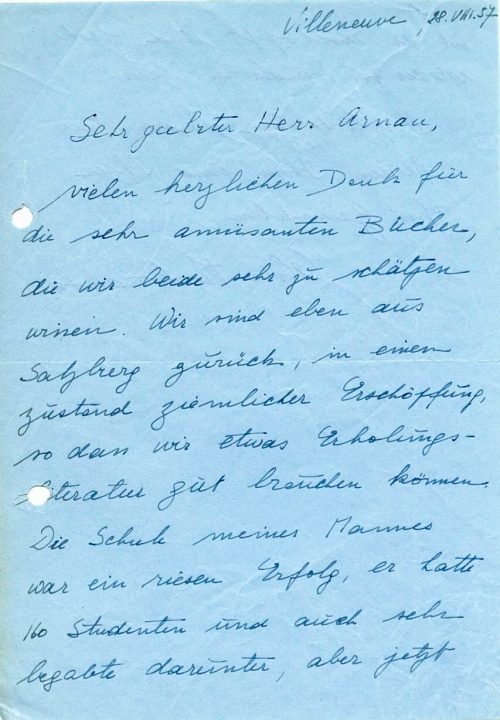 Villeneuve, 28.VIII.57
Sehr geehrter Herr Arnau,
vielen herzlichen Dank für
die sehr amüsanten Bücher,
die wir beide sehr zu schätzen
wissen. Wir sind eben aus
Salzberg zurück, in einem
zustand ziemlicher Erschöpfung,
so dass wir etwas Erholungs-
literatur gut brauchen können.
Die Schule meines Mannes
war ein riesen Erfolg, er hatte
160 Studenten und auch sehr
begabte darunter, aber jetzt